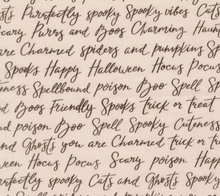 ts Purrfectly spooky Spooky vibes Cats
Scary Purrs and Boos Charming Haun
are Charmed spiders and pumpkins Sp
Spooks Happy Halloween Hocus Pocus
eness Spellbound poison Boo Spell Sp
d Boos Friendly Spooks trick or treat
nd poison Boo Spell Spooky Cuteness
and Ghosts you are Charmed trick or t
ween Hocus Pocus Scary poison Happy
purrfectly spooky Cats and Ghosts Sp